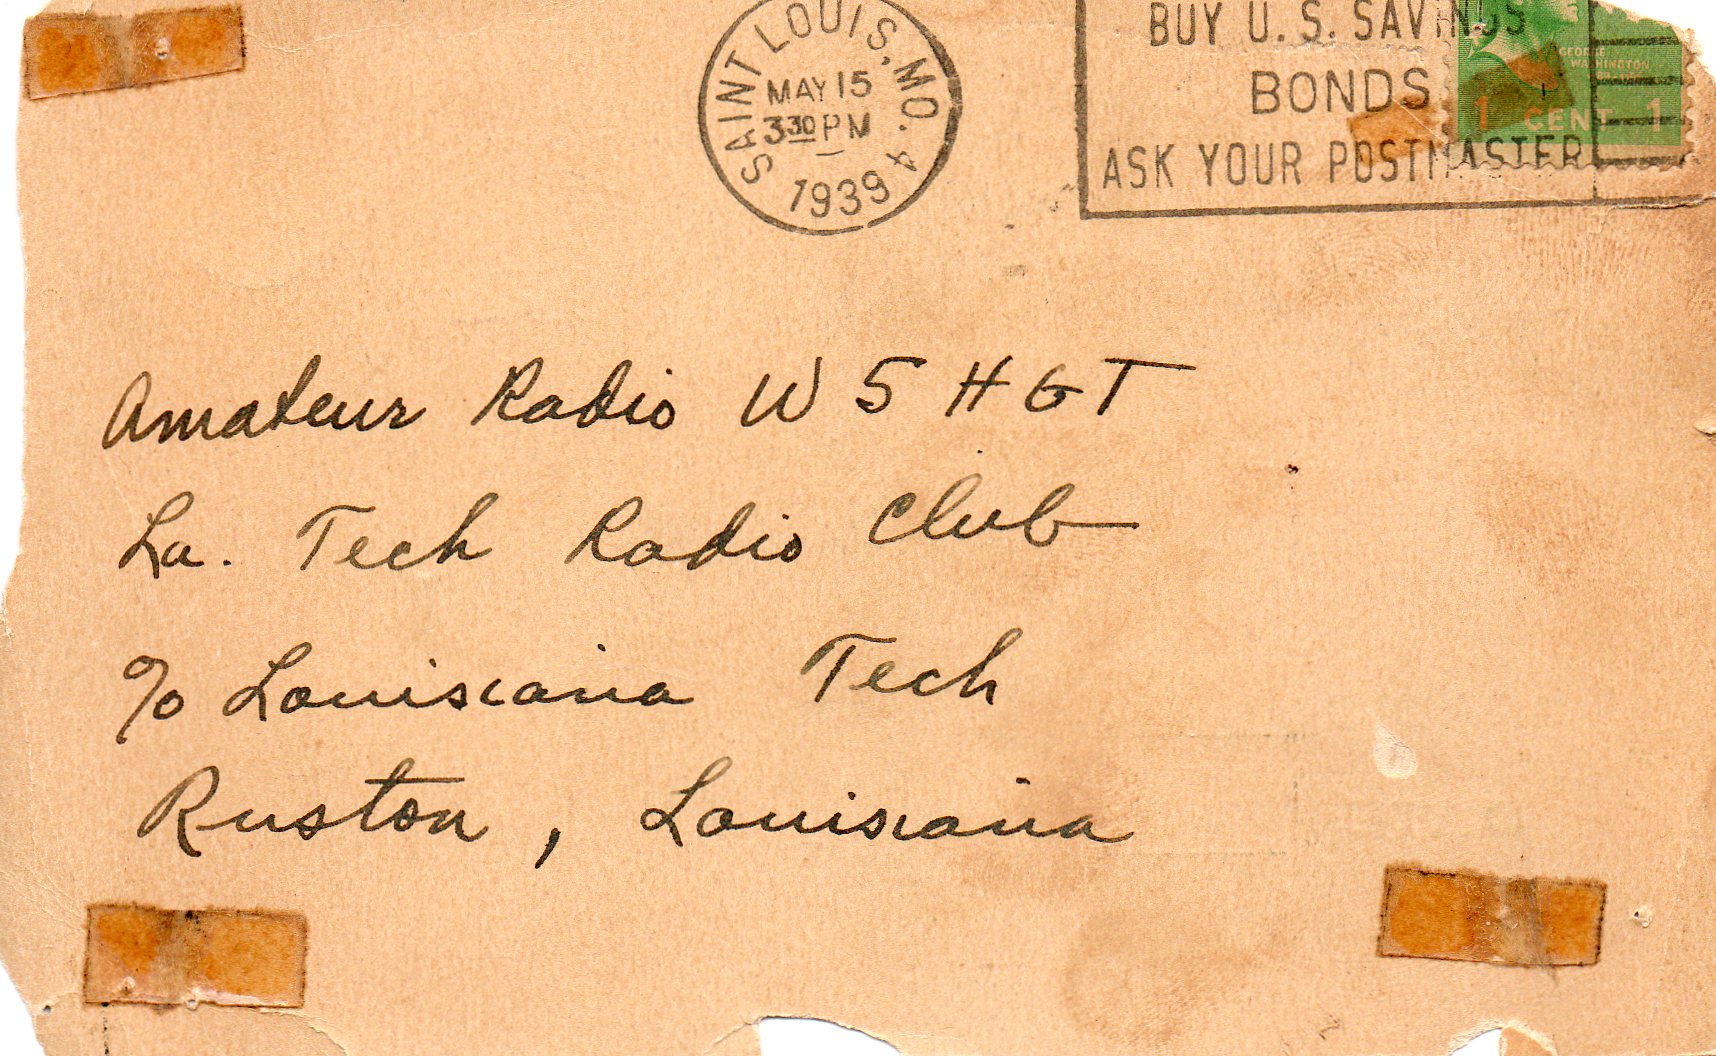 SAINT LOUIS, MO. 4
MAY 15
3 30 PM
1939
BUY U. S. SAVINGS
BONDS
ASK YOUR POSTMASTER
GEORGE
WASHINGTON
1 CENT 1
Amateur Radio W5HGT
La. Tech Radio Club
c/o Louisiana Tech
Ruston, Louisiana